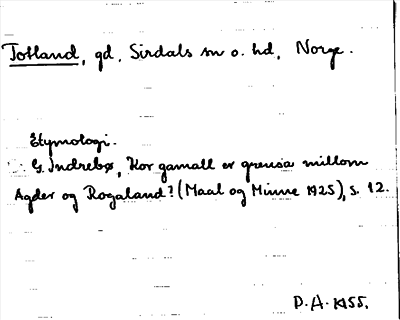 Totland, gd, Sirdals sn o. hd, Norge.
Etymologi.
G. Indrebø, Kor gamall er grensa millom
Agder og Rogaland? (Maal og Minne 1925), s. 12.
P.A. 1955.